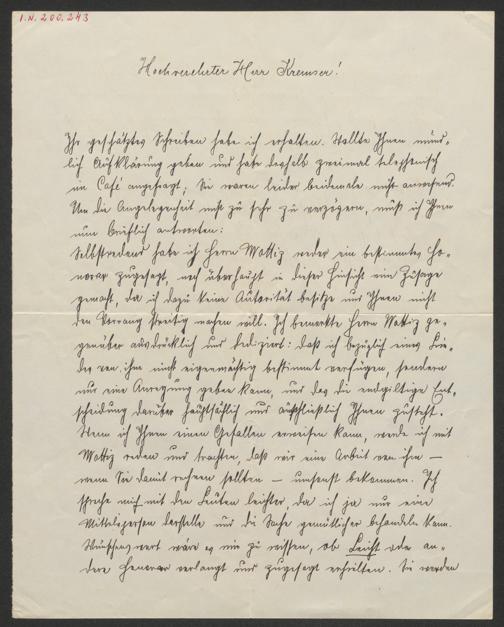 I.N. 200.243
Hochverehrter Herr Kremser!
Ihr geschätztes Schreiben habe ich erhalten. Wollte Ihnen münd-
lich Aufklärung geben und habe deshalb zweimal telephonisch
im Café angefragt; Sie waren leider beidemale nicht anwesend.
Um die Angelegenheit nicht zu sehr zu verzögern, muß ich Ihnen
nun brieflich antworten:
Selbstredend habe ich Herrn Mattiz weder ein bestimmtes Ho-
norar zugesagt, noch überhaupt in dieser Hinsicht eine Zusage
gemacht, da ich dazu keine Autorität besitze und Ihnen nicht
den Vorrang streitig machen will. Ich bemerkte Herrn Mattiz ge-
genüber ausdrücklich und dediziert: daß ich bezüglich eines Lie-
des von ihm nicht eigenmächtig bestimmt verfügen, sondern
nur eine Anregung geben kann, und daß die endgiltige Ent-
scheidung darüber hauptsächlich und ausschließlich Ihnen zusteht.
Wenn ich Ihnen einen Gefallen erweisen kann, werde ich mit
Mattiz reden und trachten, daß wir eine Arbeit von ihm –
wenn Sie damit rechnen sollten – umsonst bekommen. Ich
spreche mich mit den Leuten leichter, da ich ja nur eine
Mittelsperson darstelle und die Sache gemütlicher behandeln kann.
Wünschenswert wäre es mir zu wissen, ob Leicht oder an-
dere Honorar verlangt und zugesagt erhielten. Sie werden